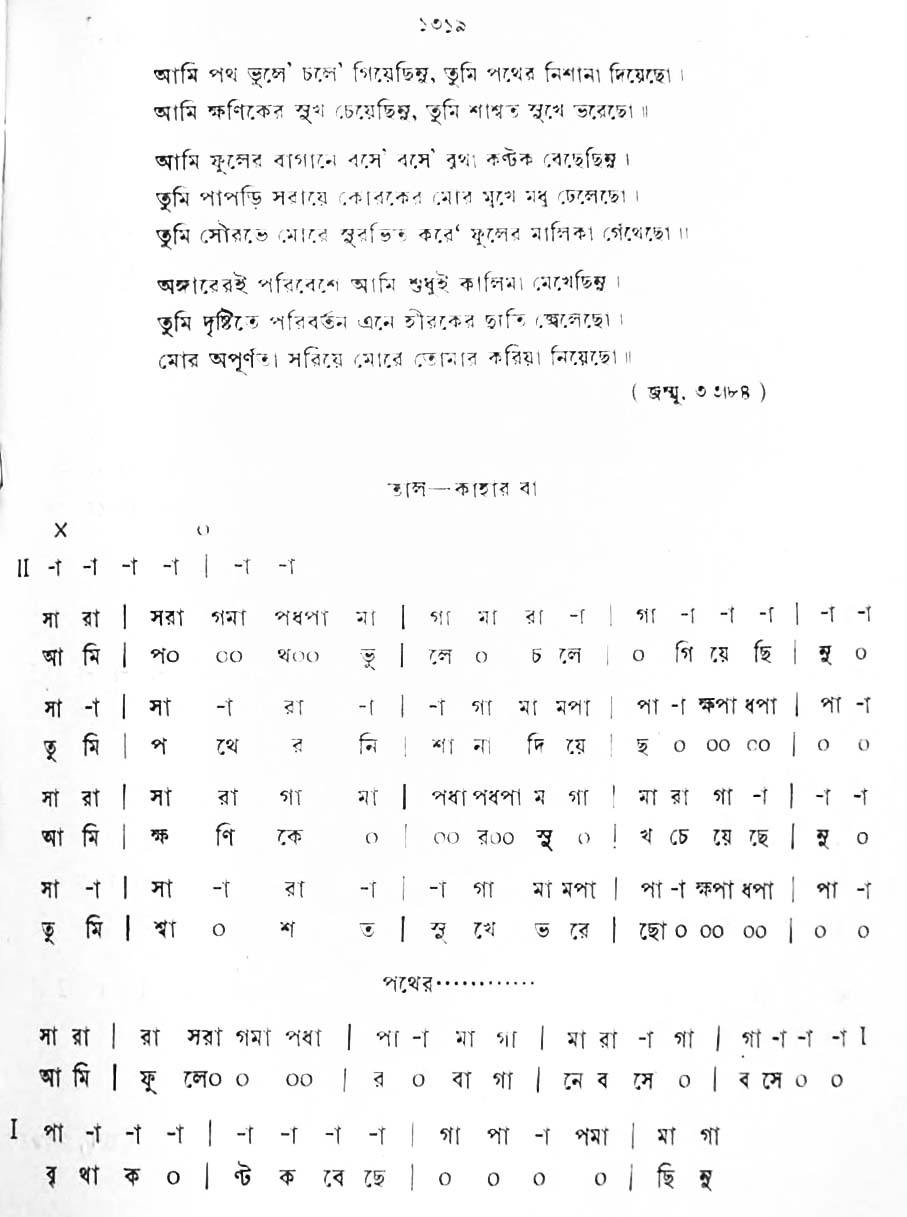 ১৩১৯
আমি পথ ভুলে' চলে' গিয়েছিনু, তুমি পথের নিশানা দিয়েছো ।
আমি ক্ষণিকের সুখ চেয়েছিনু, তুমি শাশ্বত সুখে ভরেছো ॥
আমি ফুলের বাগানে বসে' বসে' বৃথা কণ্টক বেছেছিনু ।
তুমি পাপড়ি সরায়ে কোরকের মোর মুখে মধু ঢেলেছো ।
তুমি সৌরভে মোরে সুরভিত করে' ফুলের মালিকা গেঁথেছো ॥
অঙ্গারেরই পরিবেশে আমি শুধুই কালিমা মেখেছিনু ।
তুমি দৃষ্টিতে পরিবর্তন এনে হীরকের দ্যুতি জ্বেলেছো ।
মোর অপূর্ণতা সরিয়ে মোরে তোমার করিয়া নিয়েছো ॥
( জম্মু, ৩ ৮৪ )
তাল—কাহার বা
X ০
II -া -া -া -া | -া -া
সা রা | সরা গমা পধপা মা | গা মা রা -া | গা -া -া -া | -া -া
আ মি | প০ ০০ থ০০ ভু | লে ০ চ লে | ০ গি য়ে ছি | নু ০
সা -া | সা -া রা -া | -া গা মা মপা | পা -া ক্ষপা ধপা | পা -া
তু মি | প থে র নি | শা না দি য়ে | ছ ০ ০০ ০০ | ০ ০
সা রা | সা রা গা মা | পধা পধপা ম গা | মা রা গা -া | -া -া
আ মি | ক্ষ ণি কে ০ | ০০ র০০ সু ০ | খ চে য়ে ছে | নু ০
সা -া | সা -া রা -া | -া গা মা মপা | পা -া ক্ষপা ধপা | পা -া
তু মি | শ্বা ০ শ ত | সু খে ভ রে | ছো ০ ০০ ০০ | ০ ০
পথের············
সা রা | রা সরা গমা পধা | পা -া মা গা | মা রা -া গা | গা -া -া -া I
আ মি | ফু লে০ ০ ০০ | র ০ বা গা | নে ব সে ০ | ব সে ০ ০
I পা -া -া -া | -া -া -া -া | গা পা -া পমা | মা গা
বৃ থা ক ০ | ণ্ট ক বে ছে | ০ ০ ০ ০ | ছি নু